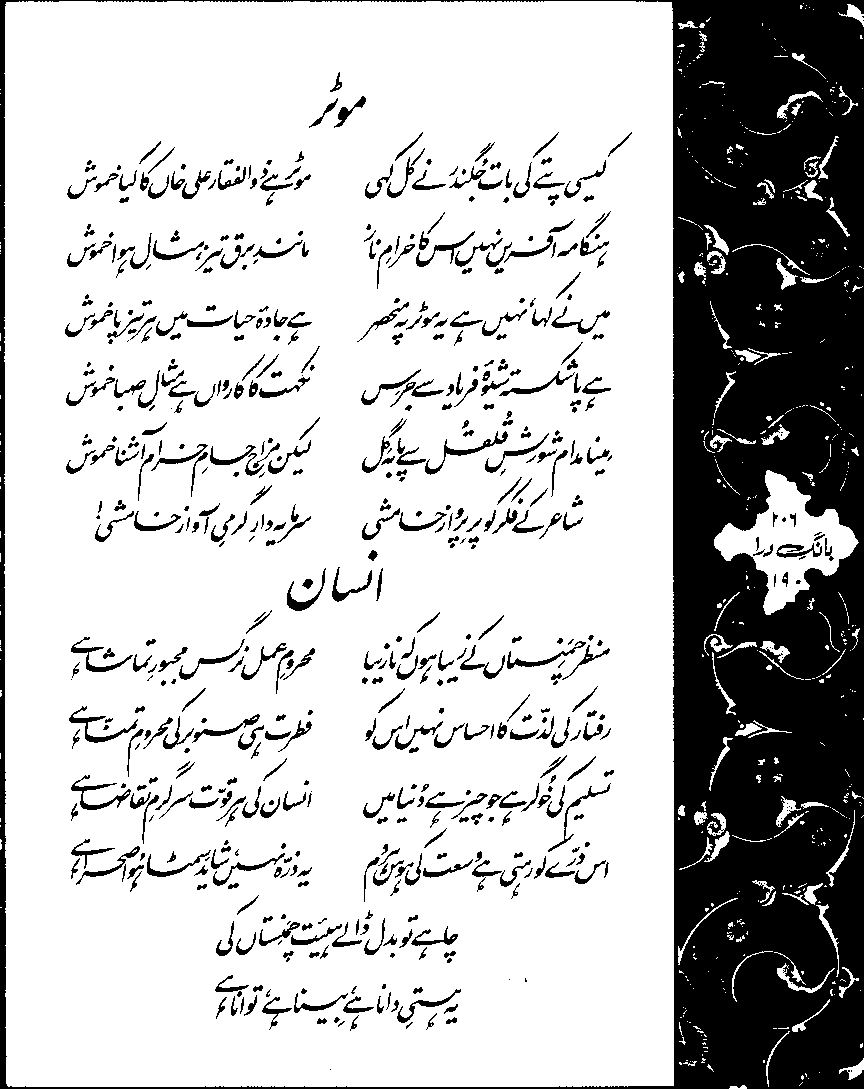 موٹر
کیسی پتے کی بات جُگندر نے کل کہی موٹر ہے ذوالفقار علی خاں کا کیا خموش
ہنگامہ آفریں نہیں اس کا خرامِ ناز مانندِ برق تیز، مثالِ ہوا خموش
میں نے کہا، نہیں ہے یہ موٹر پہ منحصر ہے جادۂ حیات میں ہر تیزپا خموش
ہے پا شکستہ شیوۂ فریاد سے جرس نکہت کا کارواں ہے مثالِ صبا خموش
مینا مدام شورشِ قُلقُل سے پا بہ گِل لیکن مزاجِ جامِ خرام آشنا خموش
شاعر کے فکر کو پرِ پرواز خامشی سرمایہ دارِ گرمیِ آواز خامشی!
انسان
منظر چَمَنِستاں کے زیبا ہوں کہ نازیبا محرومِ عمل نرگس مجبورِ تماشا ہے
رفتار کی لذّت کا احساس نہیں اس کو فطرت ہی صنوبر کی محرومِ تمنّا ہے
تسلیم کی خُوگر ہے جو چیز ہے دُنیا میں انسان کی ہر قوّت سرگرمِ تقاضا ہے
اس ذرّے کو رہتی ہے وسعت کی ہوس ہر دم یہ ذرّہ نہیں، شاید سمٹا ہُوا صحرا ہے
چاہے تو بدل ڈالے ہیئت چمنستاں کی
یہ ہستیِ دانا ہے، بینا ہے، توانا ہے
۲۰۶
بانگِ درا
۱۹۰